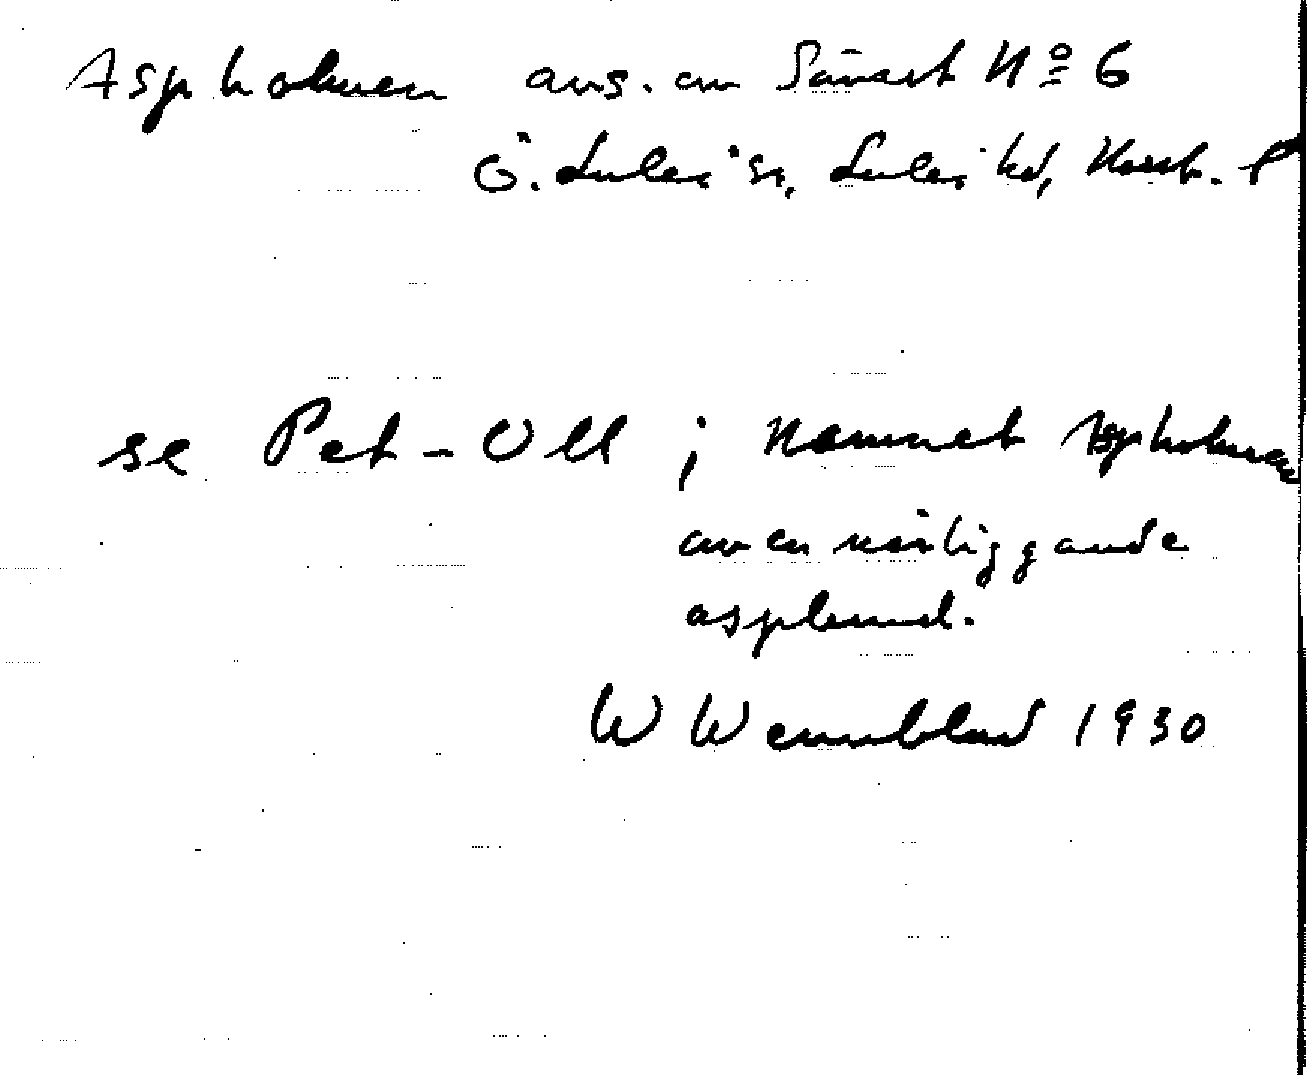 Aspholmen ans. om Sävast No 6
Ö. Luleå sn, Luleå kd, Norrb. l
se Pet-Oll ; Namnet Aspholmen
av en närliggande
asplund.
W Wennblad 1930